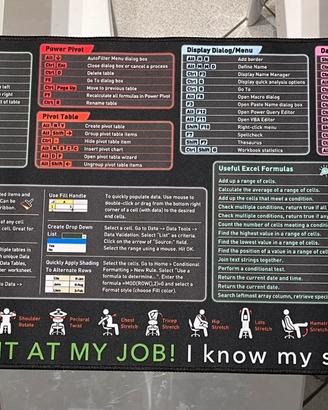 Power Pivot
Alt AutoFilter Menu dialog box
Ctrl Esc Close dialog box or cancel a process
Ctrl D Delete table
F5 Go To dialog box
Ctrl Page Up Move to previous table
F9 Recalculate all formulas in Power Pivot
Ctrl R Rename table
Pivot Table
Create pivot table
Alt Shift Group pivot table items
Ctrl Hide pivot table item
Insert pivot chart
Alt D P Open pivot table wizard
Alt Shift Ungroup pivot table items
Display Dialog/Menu
Add border
Define Name
Ctrl F3 Display Name Manager
Ctrl Q Display quick analysis options
Ctrl G Go To
Alt F8 Open Macro dialog
F3 Open Paste Name dialog box
Alt F12 Open Power Query Editor
Alt F11 Open VBA Editor
Shift F10 Right-click menu
F7 Spellcheck
Shift F7 Thesaurus
Workbook statistics
Use Fill Handle
To quickly populate data. Use mouse to
double-click or drag from the bottom right
corner of a cell (with data) to the desired
end cells.
Create Drop Down
List
Select a cell. Go to Data -> Data Tools ->
Data Validation. Select "List" as criteria.
Click on the arrow of "Source" field.
Select the range using a mouse. Hit OK.
Quickly Apply Shading
To Alternate Rows
Select the cells. Go to Home > Conditional
Formatting > New Rule. Select "Use a
formula to determine...". Enter the
formula =MOD(ROW(),2)=0 and select a
Format style (choose Fill color).
Useful Excel Formulas
Add up a range of cells.
Calculate the average of a range of cells.
Add up the cells that meet a condition.
Check multiple conditions, return true if all
Check multiple conditions, return true if any
Count the number of cells meeting a condition
Find the highest value in a range of cells.
Find the lowest value in a range of cells.
Find the position of a value in a range of
Join text strings together.
Perform a conditional test.
Return the current date and time.
Return the current date.
Search leftmost array column, retrieve speci
Shoulder
Rotate
Pectoral
Twist
Chest
Stretch
Tricep
Stretch
Hip
Stretch
Lats
Stretch
Hamstr
Stretch
T AT MY JOB! I know my s